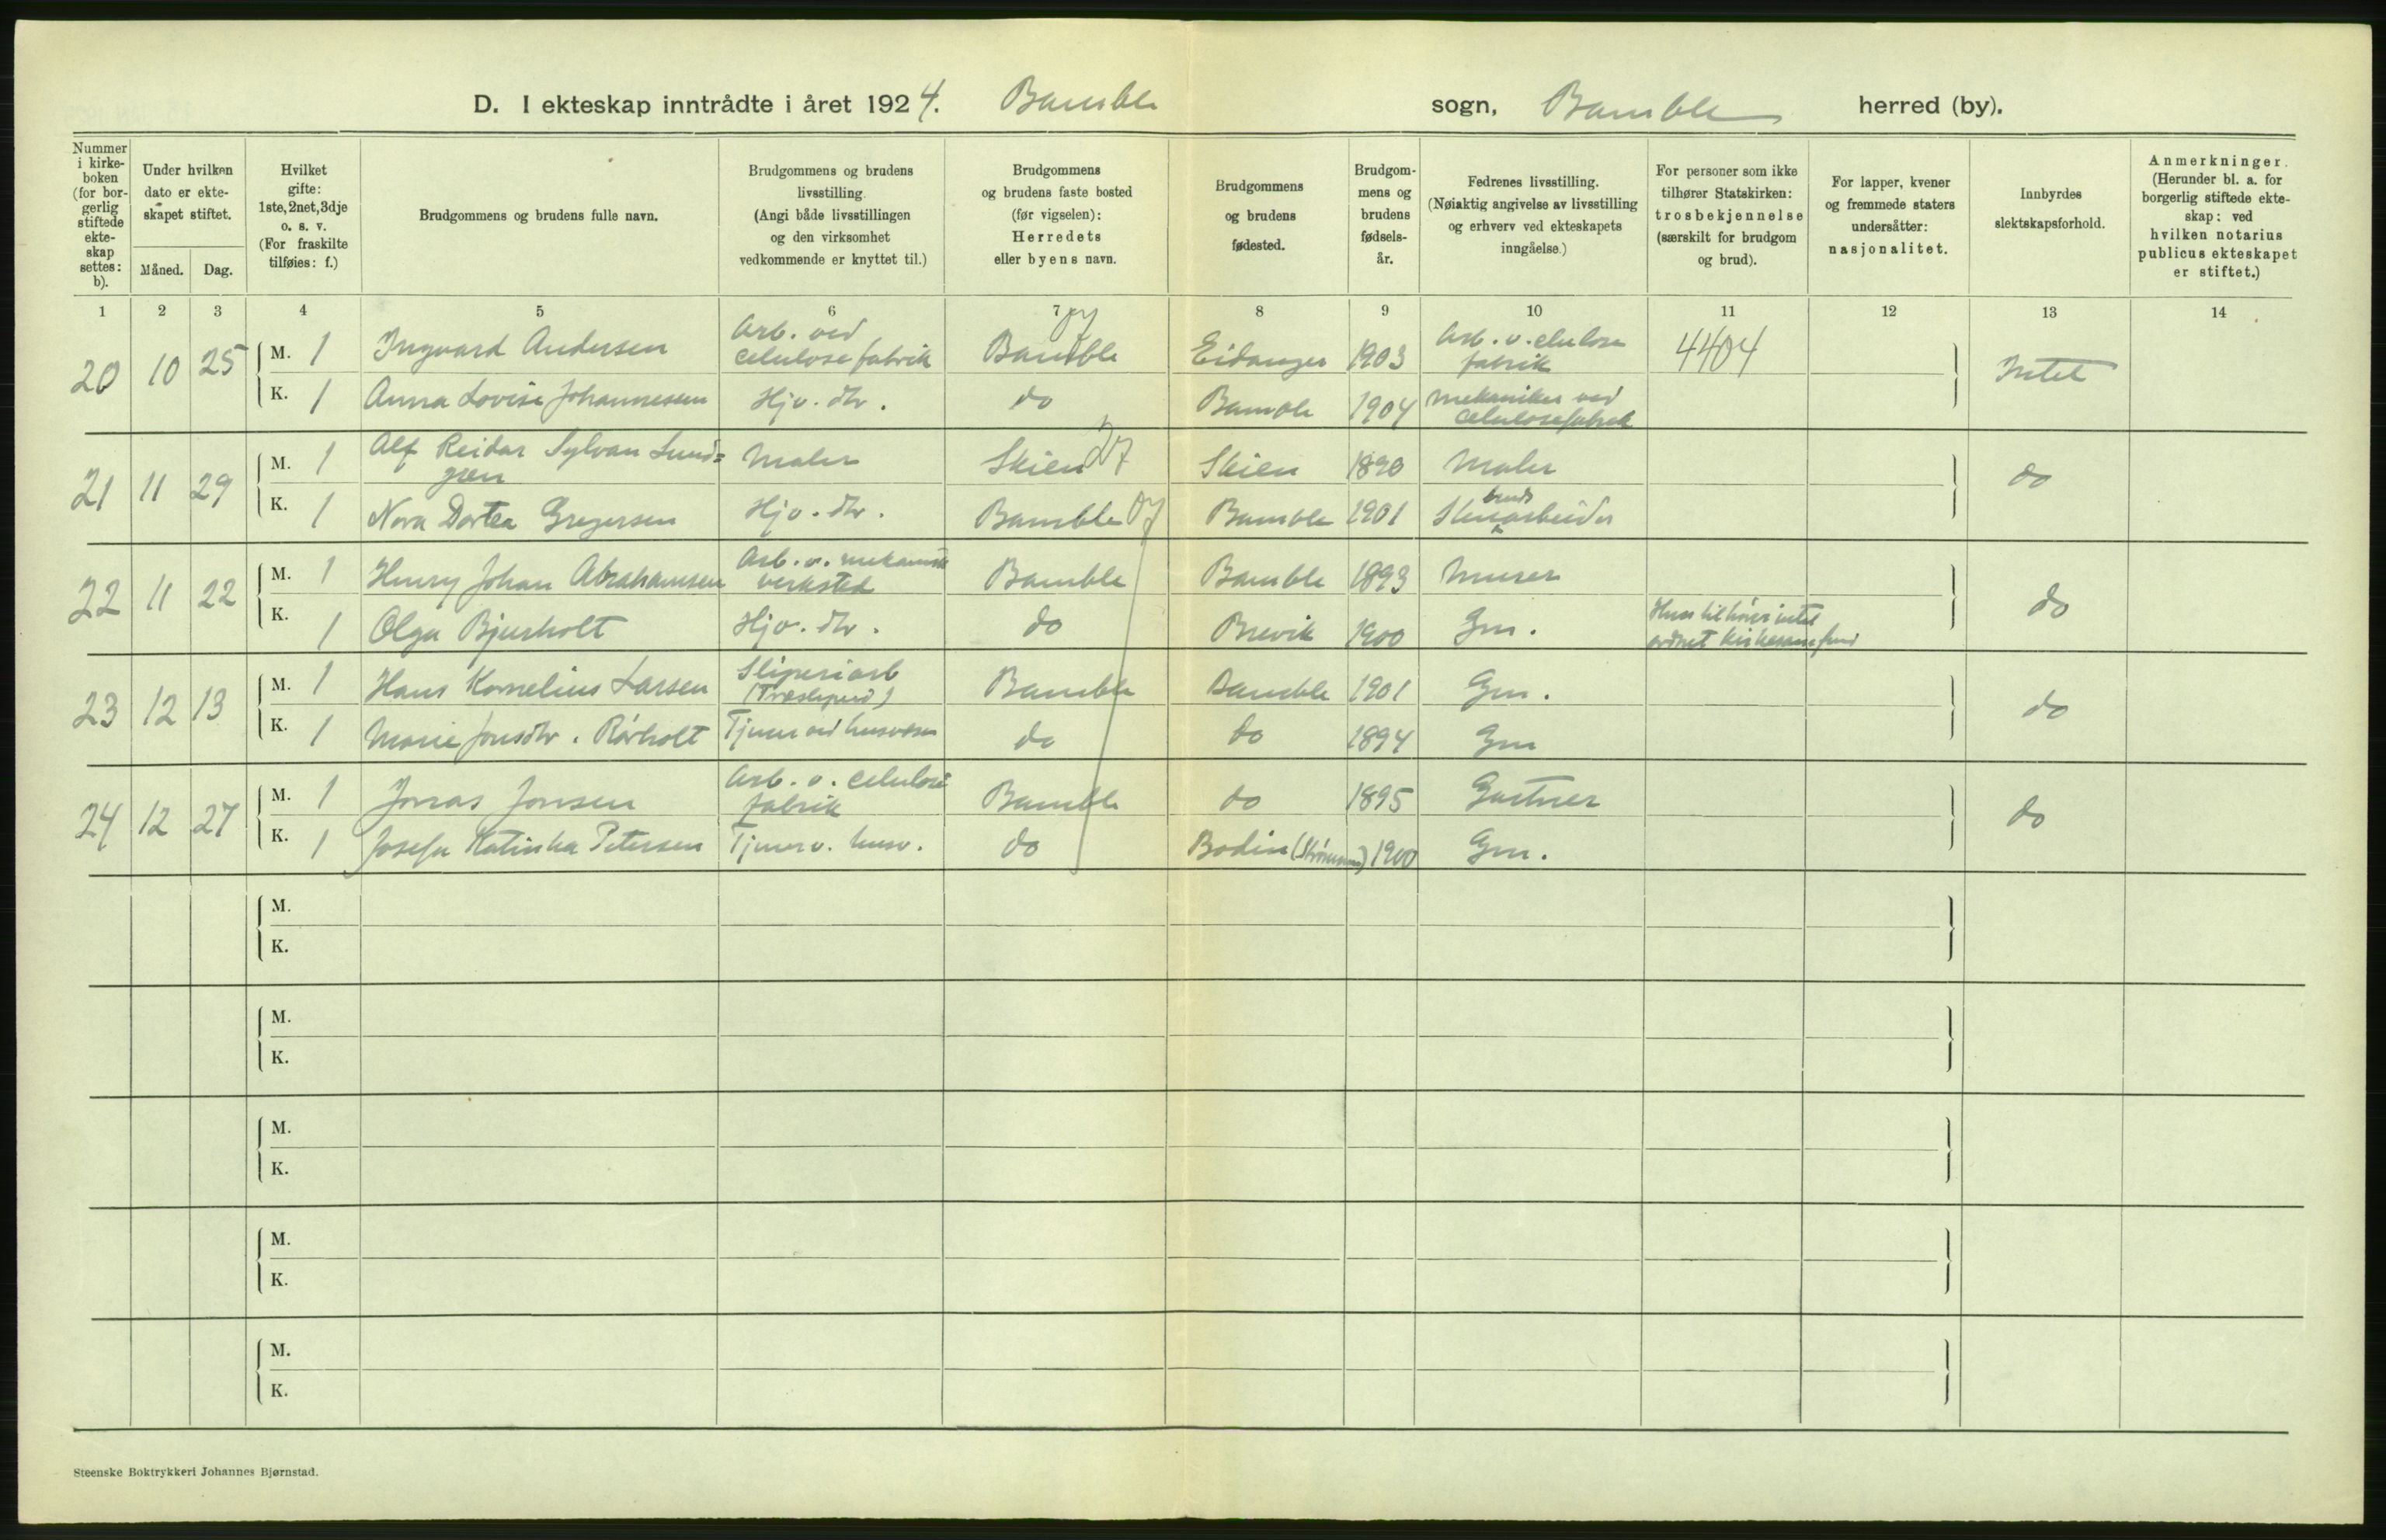 D. I ekteskap inntrådte i året 1924. Bamble sogn, Bamble herred (by).
Nummer i kirke-boken (for bor-gerlig stiftede ekte-skap settes: b).
Under hvilken dato er ekte-skapet stiftet.
Måned. Dag.
Hvilket gifte: 1ste, 2net, 3dje o. s. v. (For fraskilte tilføies: f.)
Brudgommens og brudens fulle navn.
Brudgommens og brudens livsstilling. (Angi både livsstillingen og den virksomhet vedkommende er knyttet til.)
Brudgommens og brudens faste bosted (før vigselen): Herredets eller byens navn.
Brudgommens og brudens fødested.
Brudgom-mens og brudens fødsels-år.
Fedrenes livsstilling. (Nøiaktig angivelse av livsstilling og erhverv ved ekteskapets inngåelse.)
For personer som ikke tilhører Statskirken: trosbekjennelse (særskilt for brudgom og brud).
For lapper, kvener og fremmede staters undersåtter: nasjonalitet.
Innbyrdes slektskapsforhold.
Anmerkninger. (Herunder bl. a. for borgerlig stiftede ekte-skap: ved hvilken notarius publicus ekteskapet er stiftet.)
1 2 3 4 5 6 7 8 9 10 11 12 13 14
20 10 25 M. 1 Ingvard Andersen Arb. ved celulosefabrik Bamble Eidanger 1903 Arb. v. celulose fabrik 4404 Intet
K. 1 Anna Lovise Johannessen Hjv. dtr. do Bamble 1904 Mekaniker ved celulosefabrik
21 11 29 M. 1 Alf Reidar Sylvan Lund=gren Maler Skien Skien 1890 Maler do
K. 1 Nora Dortea Gregersen Hjv. dtr. Bamble Bamble 1901 Stenbruds arbeider
22 11 22 M. 1 Henry Johan Abrahamsen Arb. v. mekanisk verksted Bamble Bamble 1893 Murer do
K. 1 Olga Bjerkholt Hjv. dtr. do Brevik 1900 Gm. Hun tilhører intet ordnet kirkesamfund
23 12 13 M. 1 Hans Kornelius Larsen Sliperiarb (Træsliperi) Bamble Bamble 1901 Gm. do
K. 1 Marie Jonsdtr. Rørholt Tjener ved husvesen do do 1894 Gm
24 12 27 M. 1 Jonas Jonsen Arb. v. celulose fabrik Bamble do 1895 Gartner do
K. 1 Josefa Katinka Petersen Tjener v. husv. do Bodin 1900 Gm.
M.
K.
M.
K.
M.
K.
M.
K.
M.
K.
Steenske Boktrykkeri Johannes Bjørnstad.